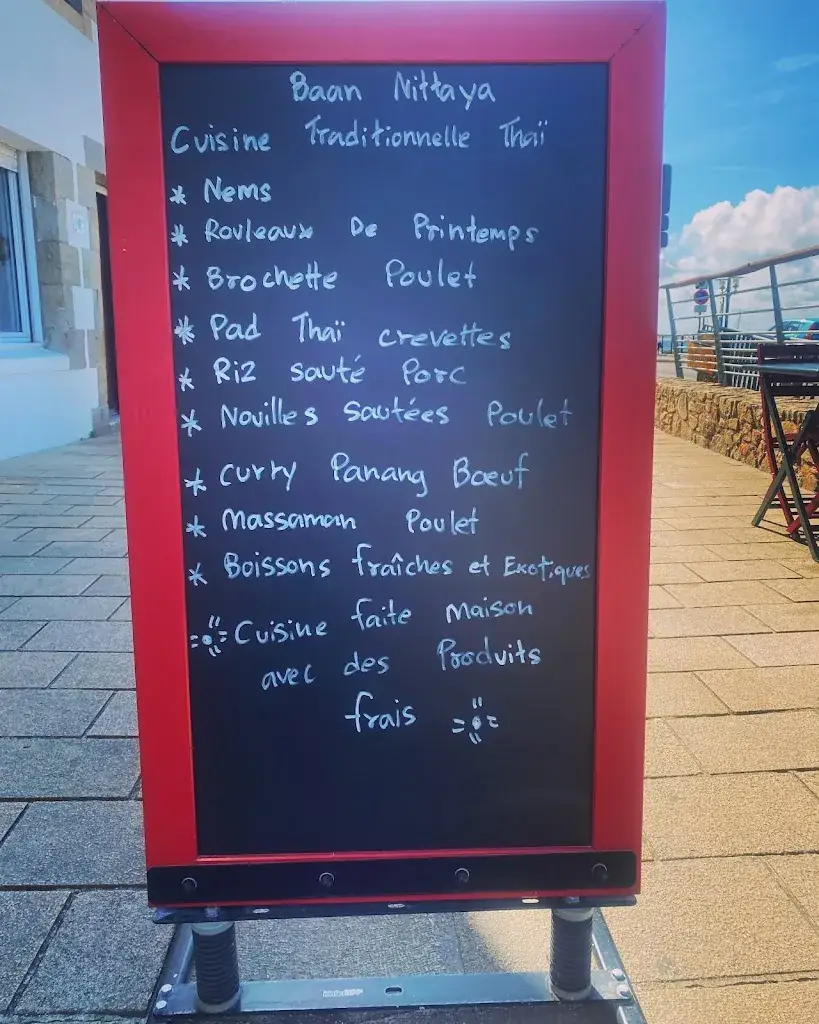 Baan Nittaya
Cuisine Traditionnelle Thaï
* Nems
* Rouleaux De Printemps
* Brochette Poulet
* Pad Thaï crevettes
* Riz sauté Porc
* Nouilles sautées Poulet
* Curry Panang Bœuf
* Massaman Poulet
* Boissons fraîches et Exotiques
Cuisine faite Maison
avec des Produits
frais